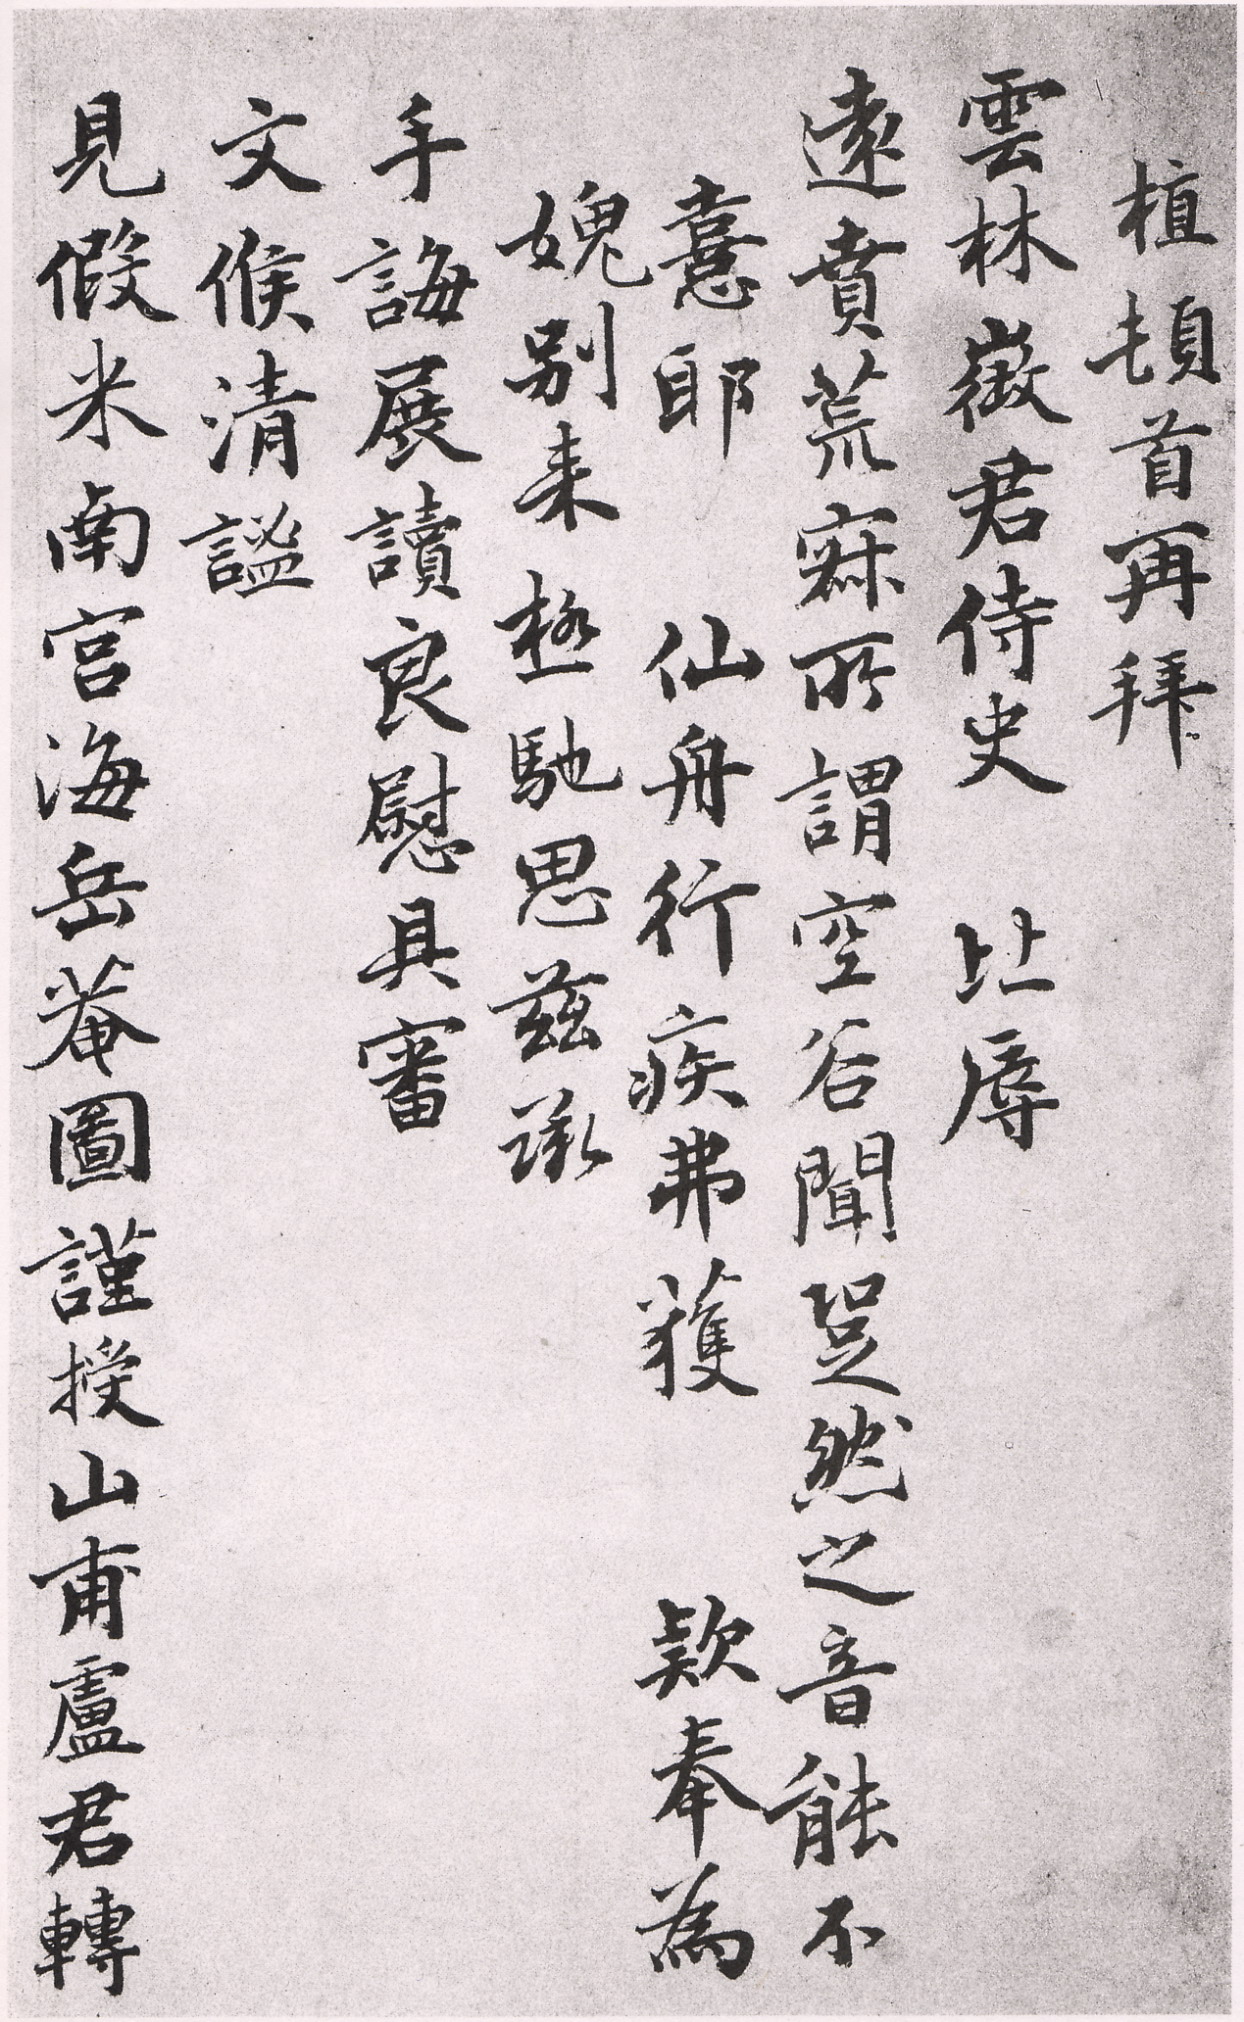 植頓首再拜
雲林徵君侍史 比辱
遠賁荒寂所謂空谷聞跫然之音能不
憙耶 仙舟行疾弗獲 欵奉為
媿別来極馳思茲承
手誨展讀良慰具審
文候清謐
見假米南宮海岳菴圖謹授山甫盧君轉